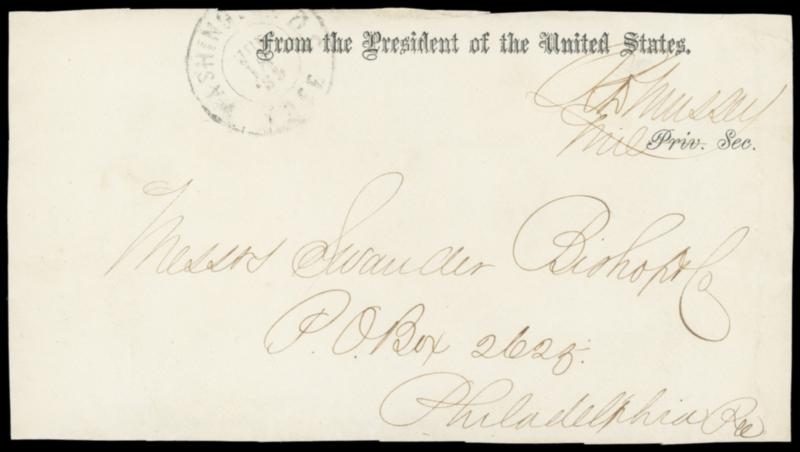 WASHINGTON D.C.
FREE
From the President of the United States.
R D Mussey
Mil Priv. Sec.
Messrs Swander Bishop & Co
P. O. Box 2628.
Philadelphia Pa